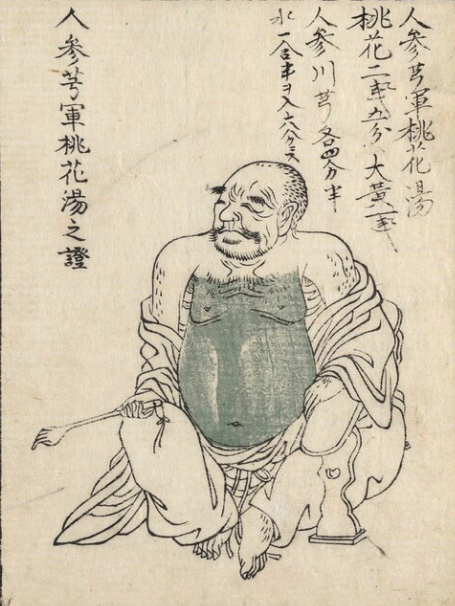 人參芎軍桃花湯
桃花二匁五分 大黄一匁
人參川芎各四分半
水一合半ヲ入六分
人參芎軍桃花湯之證